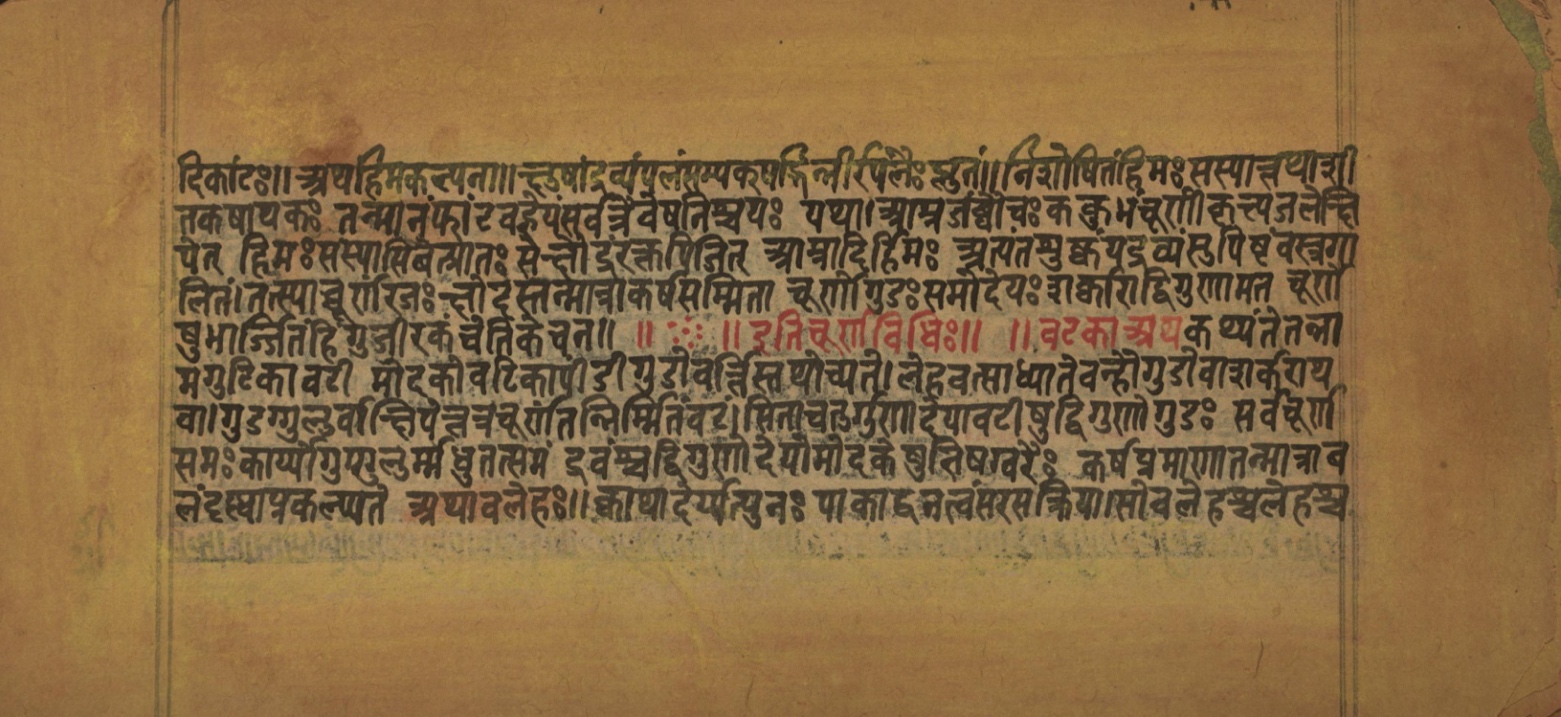 दिकांटः॥ अथहिमकल्पना॥ क्षुण्णंद्रव्यंपलंसम्यक्षड्भिर्नीरपलैःप्लुतं॥ निशोषितंहिमःसस्यात्तथाशी
तकषायकः तन्मानंफांटवज्ज्ञेयंसर्वत्रैवेषनिश्चयः यथा। आम्रजंबूचःककुभंचूर्णीकृत्यजलेक्षि
पेत् हिमःसस्यात्पिबेत्प्रातःसक्षौद्ररक्तपित्तजित् आम्रादिर्हिमः अत्यंतशुष्कंयद्द्रव्यंसुपिष्टंवस्त्रगा
लितं। तत्स्याच्चूर्णरजःक्षोदस्तन्मात्राकर्षसम्मिता चूर्णेगुडःसमोदेयःशर्क्कराद्विगुणामत चूर्णे
षुभार्ज्जितंहिंगुजीरकंचेतिकेचन॥ ॥ ॥ इतिचूर्णविधिः॥ ॥ वटकाअथकथ्यंतेतन्ना
मगुटिकावटी मोदकोवटिकापिंडीगुडोवर्त्तिस्तथोच्यते। लेहवत्साध्यतेवन्हौगुडोवाशर्कराथ
वा। गुडगुग्गुलुर्वाक्षिपेत्तत्रचूर्णंतन्निर्म्मितंवटी। सिताचतुर्गुणादेयावटीषुद्विगुणोगुडः सर्वचूर्ण
समःकार्य्योगुग्गुलुर्म्मधुतत्समं द्रवंश्चद्विगुणोदेयोमोदकेषुभिषग्वरैः कर्षप्रमाणातन्मात्राब
लंदृष्ट्वाप्रकल्प्यते अथावलेहः॥ क्वाथादेर्य्यत्पुनः पाकाद्घनत्वंसरसक्रिया। सोवलेहश्चलेहश्च